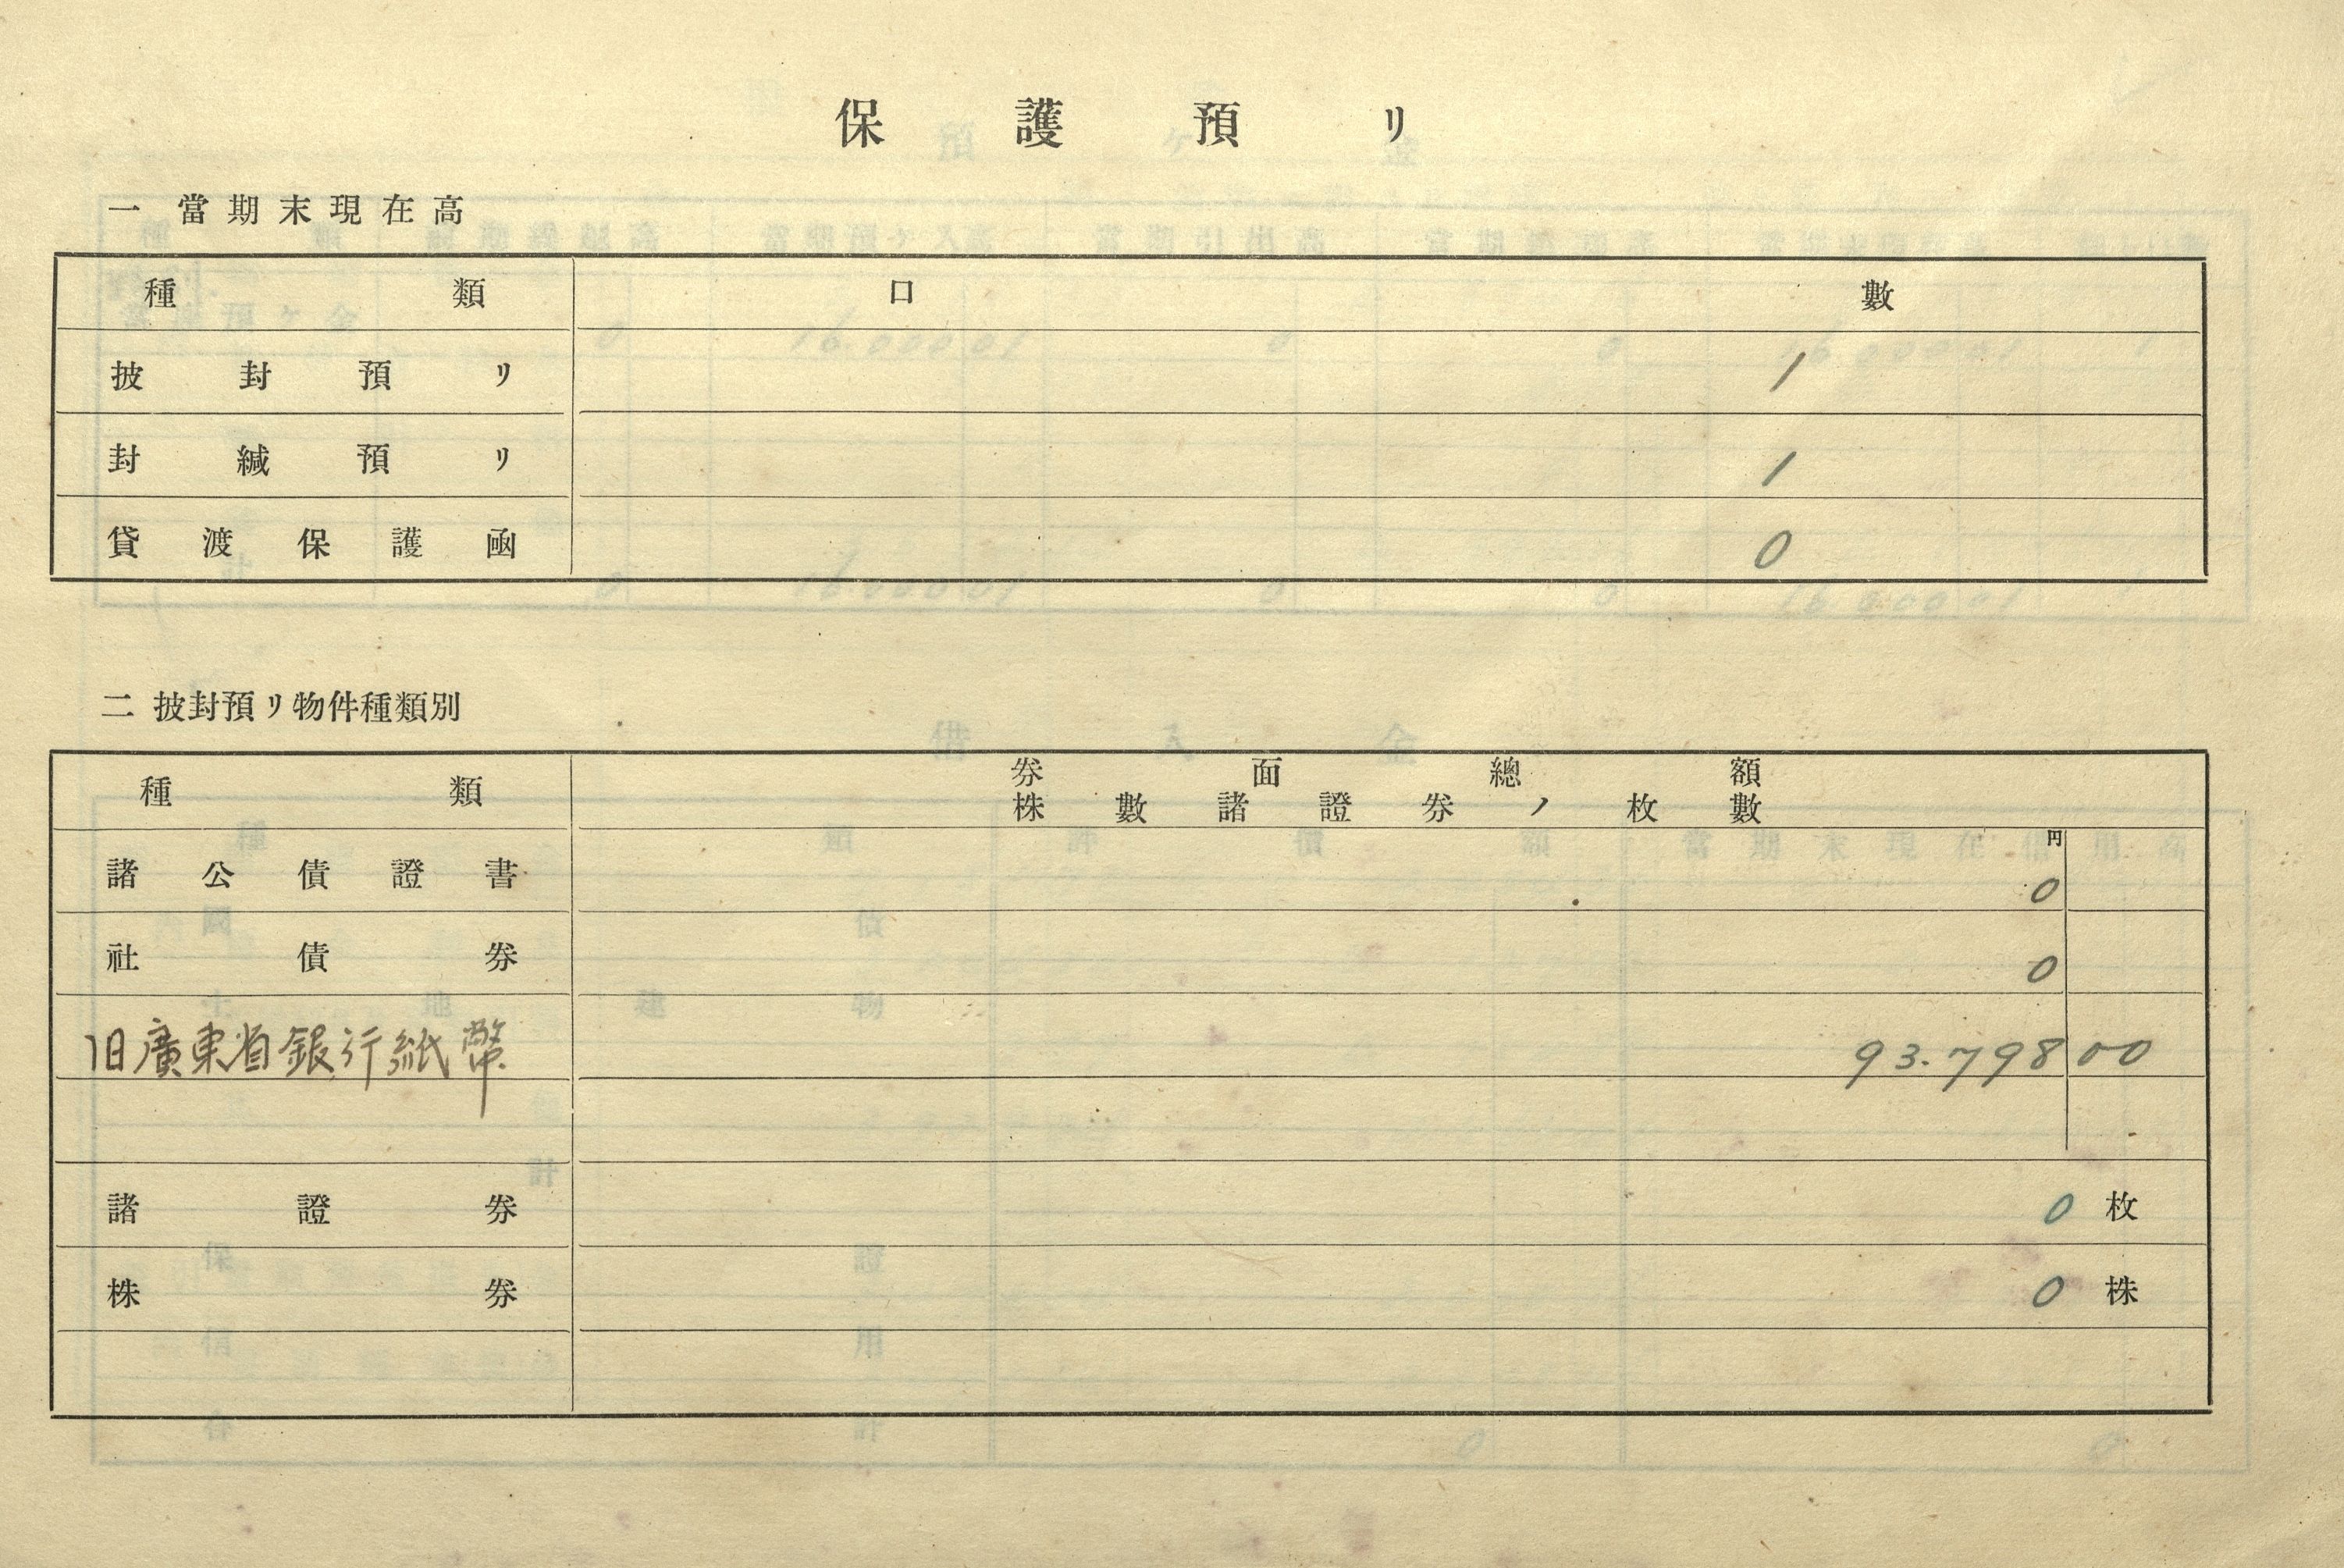 保護預リ
一 當期末現在高
種類 口數
披封預リ 1
封緘預リ 1
貸渡保護凾 0
二 披封預リ物件種類別
種類 券面總額
株數諸證券ノ枚數
円
諸公債證書 0
社債券 0
旧廣東省銀行紙幣 93.798 00
諸證券 0 枚
株券 0 株